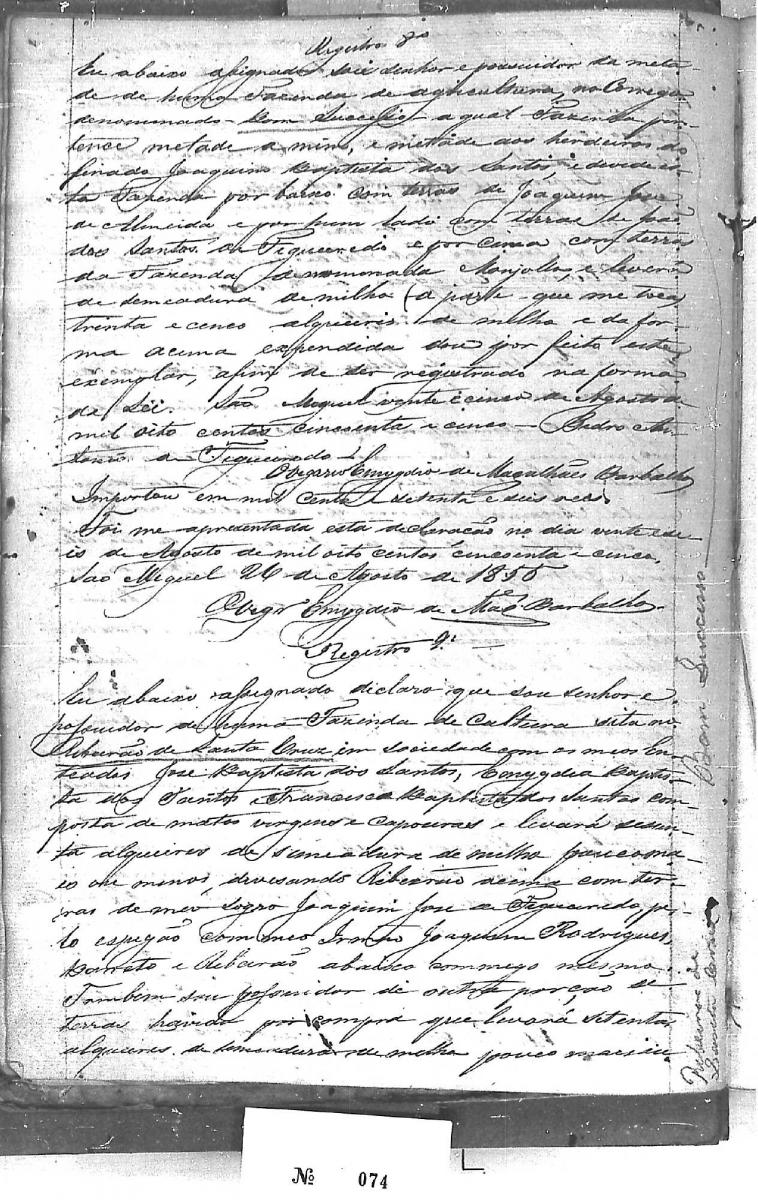 Registro 8º
Eu abaixo assignado sou senhor e possuidor da meta-
de de huma Fazenda de agricultura, no Corrego
denominado - Bom Successo - a qual Fazenda per-
tence metade a mim, e metade aos herdeiros do
finado Joaquim Baptista dos Santos, e devide es-
ta Fazenda por baixo com terras de Joaquim Jose
de Almeida e por hum lado com terras de João
dos Santos de Figueiredo e por cima com terras
da Fazenda denominada Monjollo, e levará
de semeadura de milho (a parte que me toca
trinta e cinco alqueires de milho e da for-
ma acima expendida dou por feito este
exemplar, afim de ser registrado na forma
da Lei. São Miguel vinte e cinco de Agosto de
mil oito centos cincoenta e cinco - Pedro An-
tonio de Figueiredo
O Vegario Emygdio de Magalhães Barbalho
Importou em mil cento e setenta e seis reis
Foi me apresentada esta declaração no dia vinte e se-
is de Agosto de mil oito centos cincoenta e cinco,
São Miguel 26 de Agosto de 1855
O Vegrº Emygdio de Magês Barbalho
Registro 9º
Eu abaixo assignado declaro que sou senhor e
possuidor de huma Fazenda de Cultura sita no
Ribeirão de Santa Cruz em sociedade com os meos En-
teados Jose Baptista dos Santos, Emygdia Baptis-
ta dos Santos Francisca Baptista dos Santos com-
posta de matos virgens e capoeiras e levará sesen-
ta alqueires de semeadura de milho pouco ma-
is ou menos, devesando Ribeirão acima com ter-
ras de meo Sogro Joaquim Jose de Figueiredo, pe-
lo espigão com meo Irmão Joaquim Rodrigues
Barreto e Ribeirão abaixo commego mesmo.
Tambem sou possuidor de outra porção de
terras havida por compra que levará setenta
alqueires de semeadura de milho pouco mais ou
Bom Successo
Ribeirão de
Santa Cruz
Nº 074